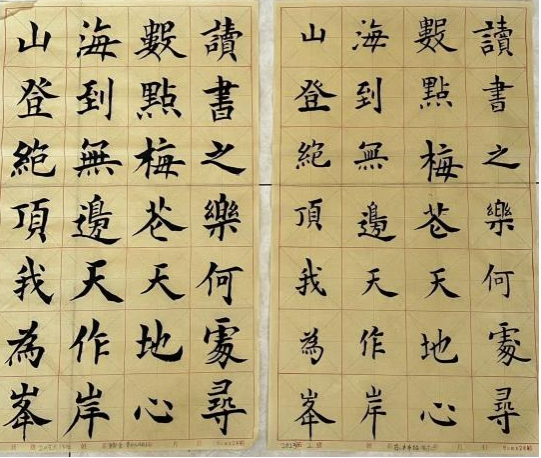 讀書之樂何處尋
數點梅花天地心
海到無邊天作岸
山登絕頂我為峯
讀書之樂何處尋
數點梅花天地心
海到無邊天作岸
山登絕頂我為峯